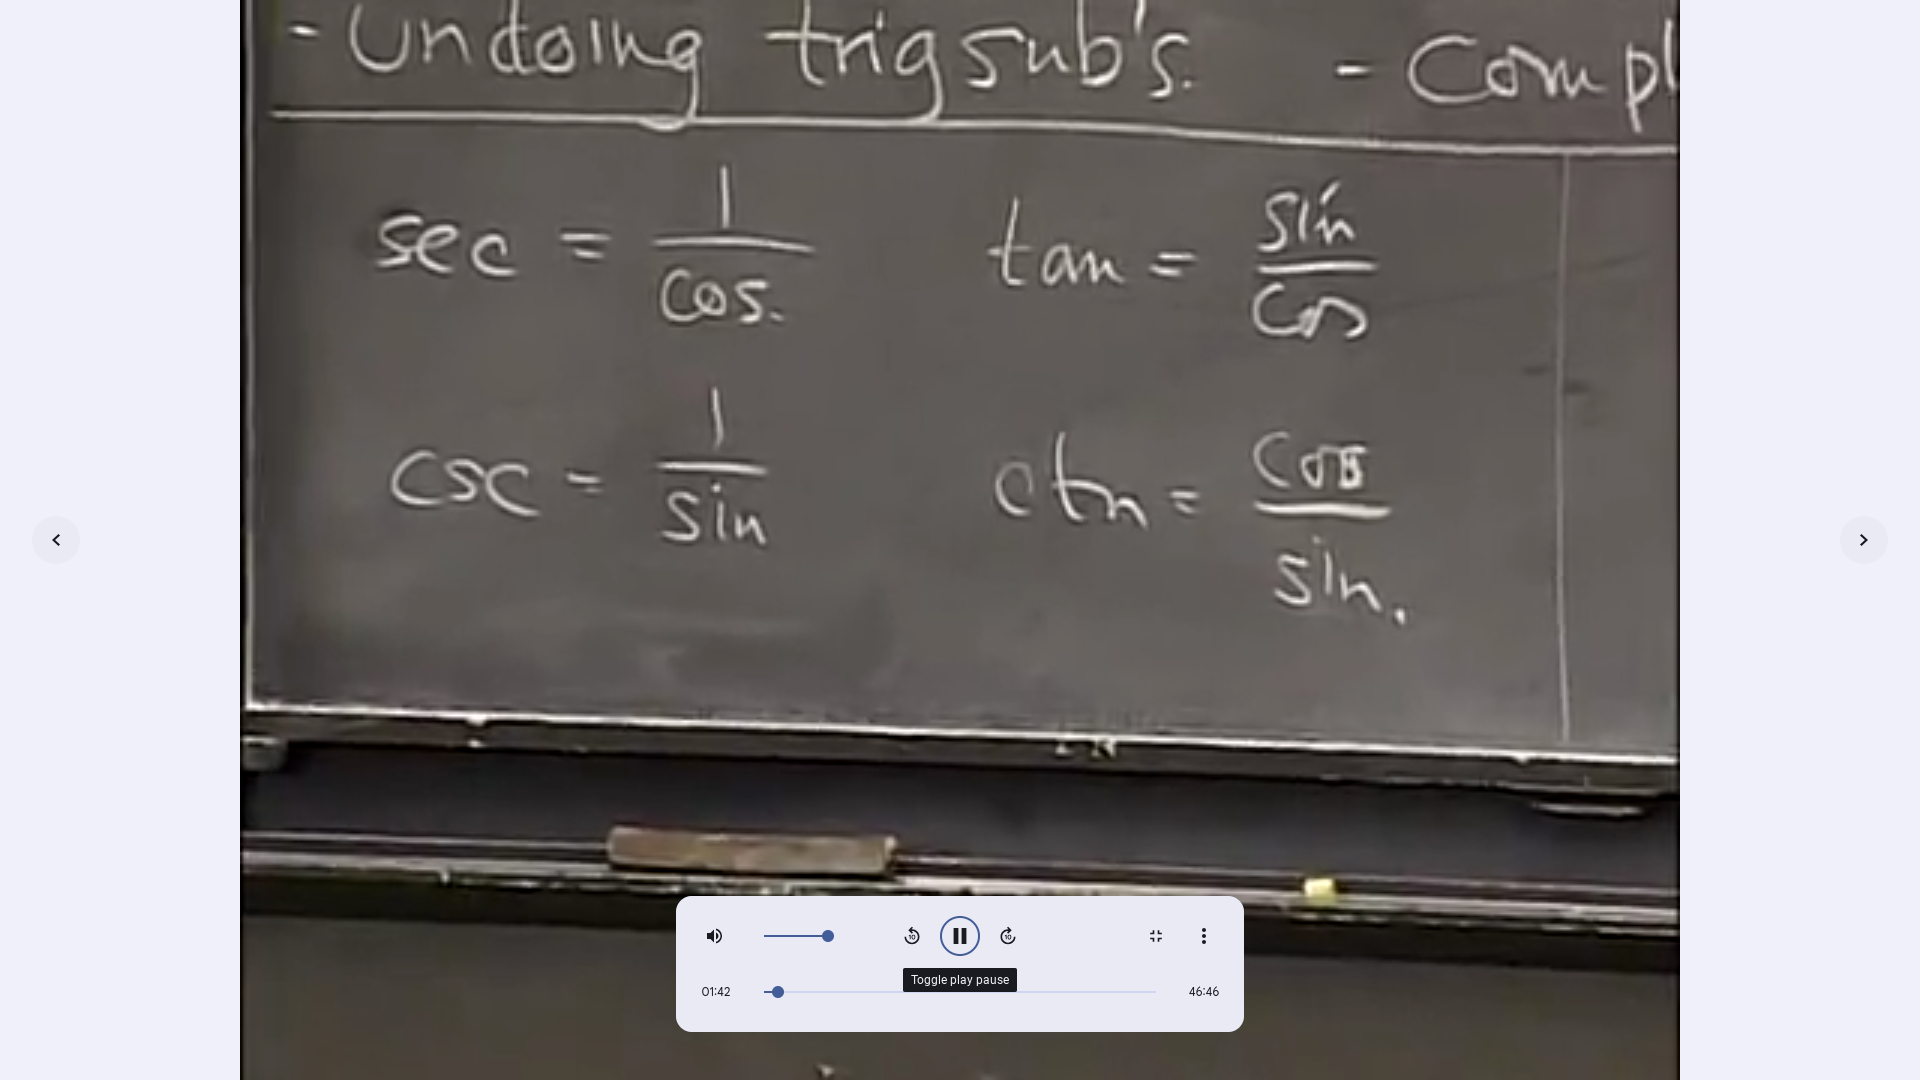 - Undoing trig sub's. - Compl
sec = 1/cos. tan = sin/cos
csc = 1/sin ctn = cos/sin.
Toggle play pause
01:42 46:46